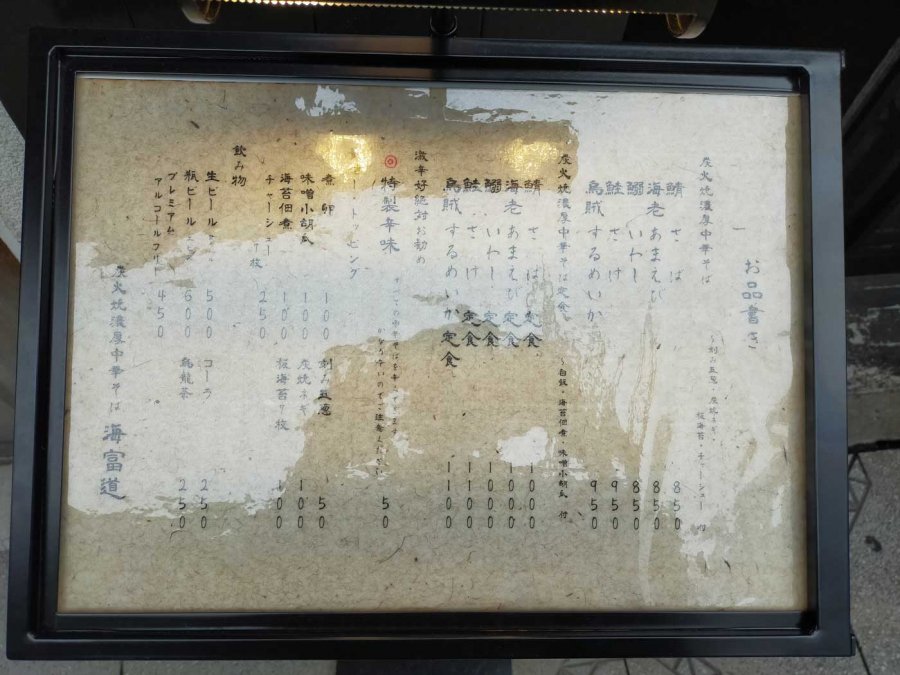 お品書き
炭火焼濃厚中華そば
〜刻み玉葱・炭焼ネギ・
板海苔・チャーシュー 付
鯖 さ ば 850
海老 あまえび 850
鰯 いわし 850
鮭 さ け 950
烏賊 するめいか 950
炭火焼濃厚中華そば定食
〜白飯・海苔佃煮・味噌小胡瓜 付
鯖 さ ば 定食 1000
海老 あまえび 定食 1000
鰯 いわし 定食 1000
鮭 さ け 定食 1100
烏賊 するめいか 定食 1100
激辛好絶対お勧め
特製辛味 50
すべての中華そばを辛くできます
かなり辛いのでご注意ください
トッピング
煮卵 100
刻み玉葱 50
味噌小胡瓜 100
炭焼ネギ 100
海苔佃煮 100
板海苔7枚 100
チャーシュー 枚 250
飲み物
生ビール 500
コーラ 250
瓶ビール 600
烏龍茶 250
プレミアム
アルコールフリー 450
炭火焼濃厚中華そば 海富道